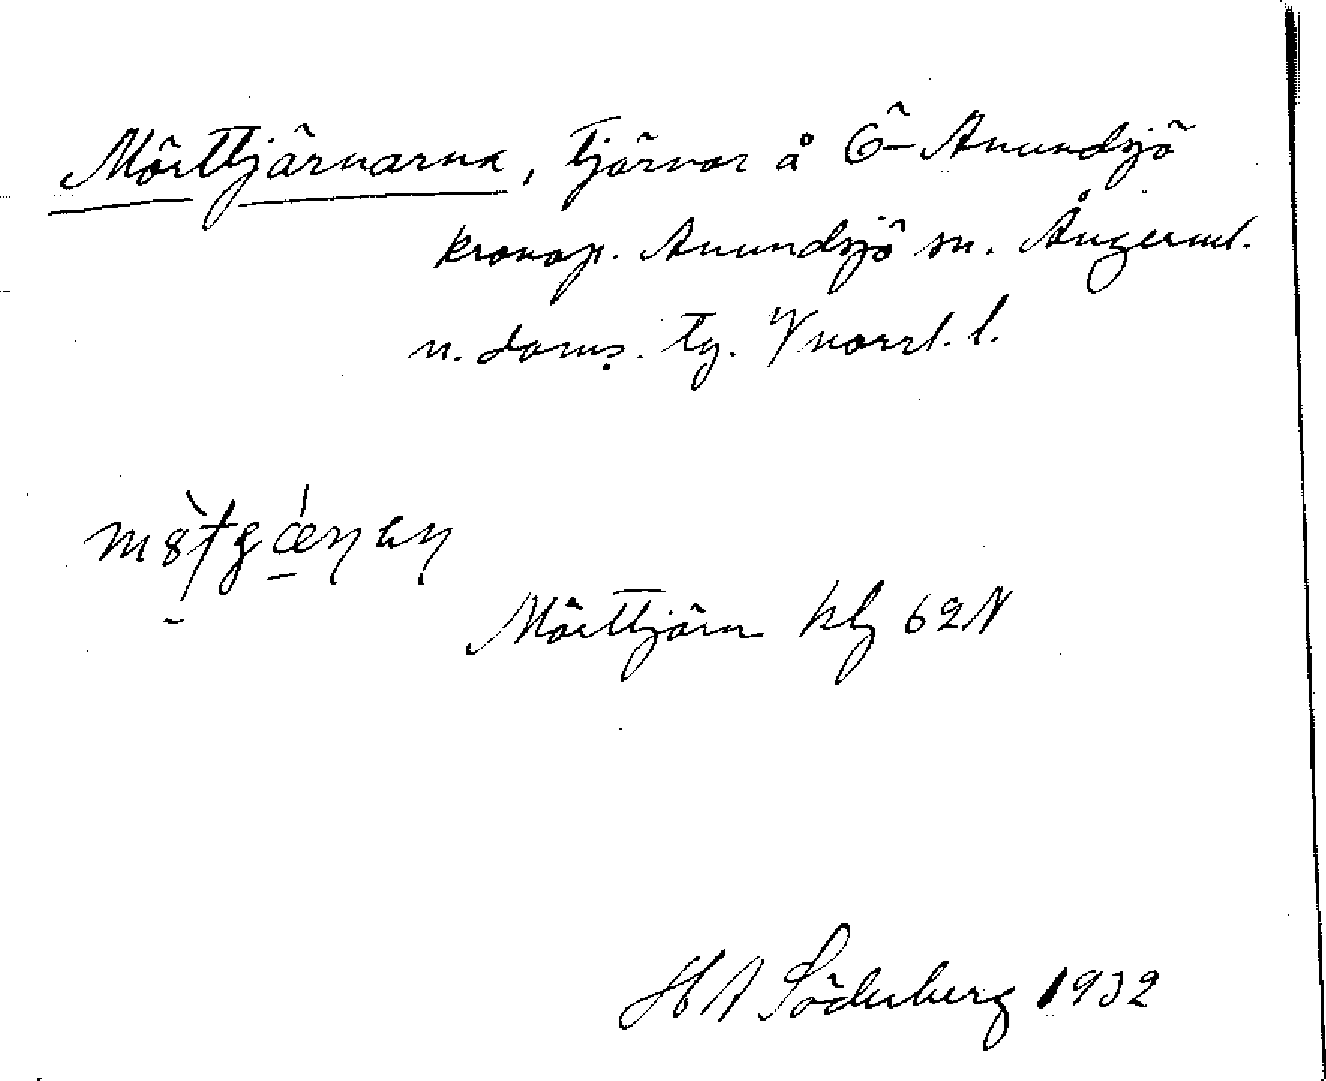 Mörttjärnarna, tjärnar å Ö-Anundsjö
kronop. Anundsjö sn. Ångerml.
n. doms. tg. V norrl. l.
Mörttjärn kbl 62 N
H A Söderberg 1932